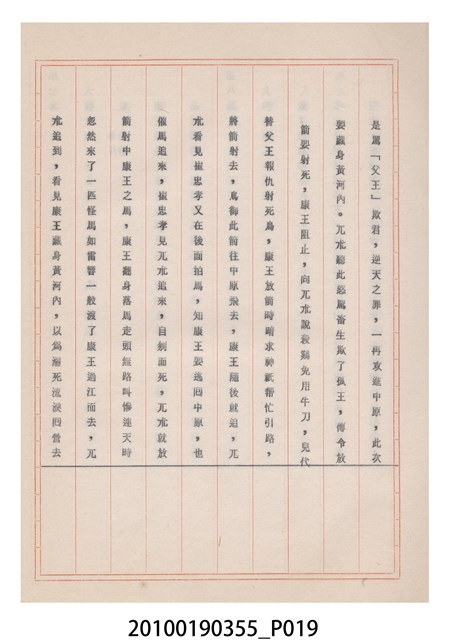 是罵「父王」欺君，逆天之罪，一再攻進中原，此次
要藏身黃河內。兀朮聽此怒罵畜生欺了孤王，傳令放
箭要射死，康王阻止，向兀朮說殺鷄免用牛刀，兒代
替父王報仇射死鳥，康王放箭時暗求神祇幫忙引路，
將箭射去，鳥御此箭往中原飛去，康王隨後就追，兀
朮看見崔忠孝又在後面拍馬，知康王要逃回中原，也
催馬追來，崔忠孝見兀朮追來，自刎而死，兀朮就放
箭射中康王之馬，康王翻身落馬走頭無路叫慘連天時
忽然來了一匹怪馬如雷響一般渡了康王過江而去，兀
朮追到，看見康王藏身黃河內，以為溺死流淚回營去
20100190355_P019